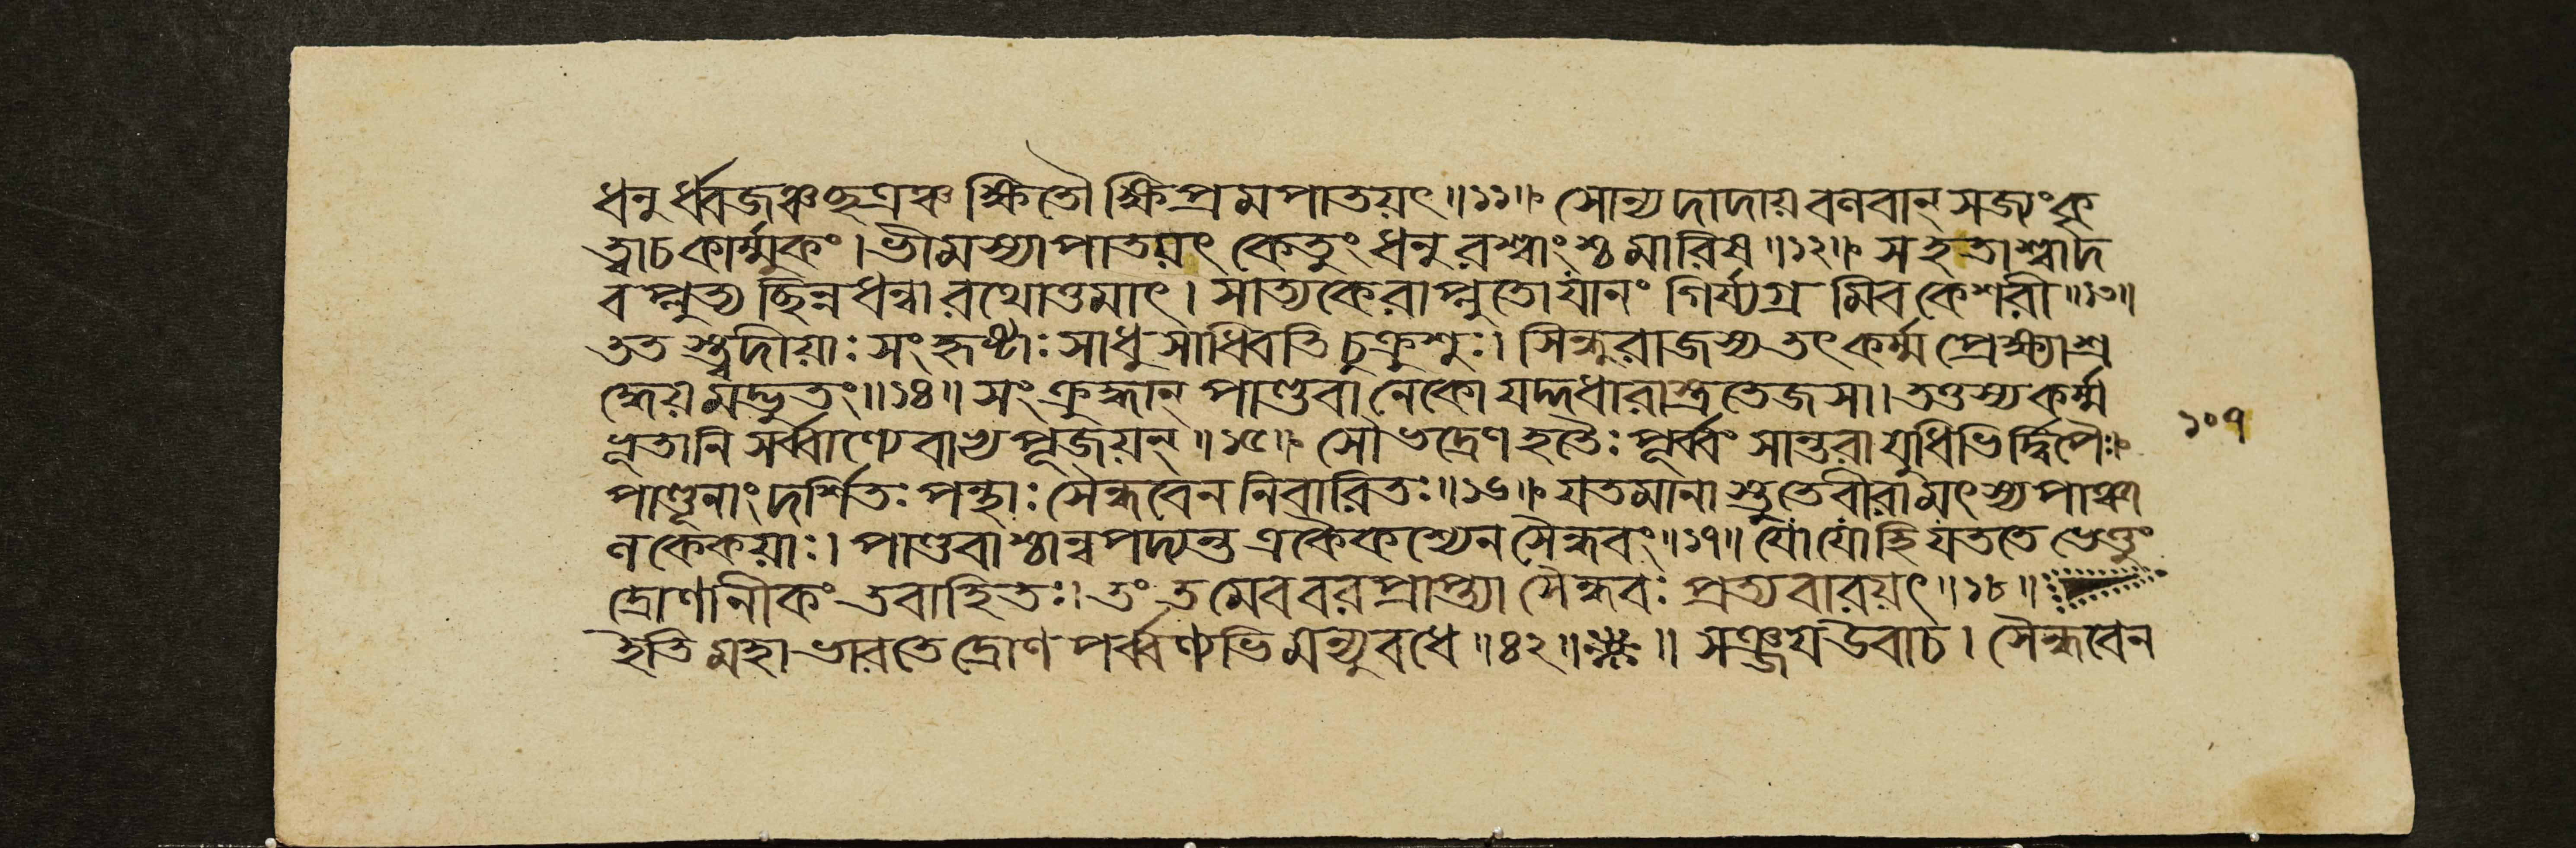 ধনুর্ধ্বজঞ্চ ছত্রঞ্চ ক্ষিতৌ ক্ষিপ্রমপাতয়ৎ॥১১॥ সোন্যদাদায় বলবান্ সজ্যং কৃ
ত্বা চ কার্ম্মুকং। ভীমস্যাপাতয়ৎ কেতুং ধনুরশ্বাংশ্চ মারিষ॥১২॥ স হতাশ্বাদ
বপ্লুত্য ছিন্নধন্বা রথোত্তমাৎ। সাত্যকেরাপ্লুতো যানং গির্য্যগ্রমিব কেশরী॥১৩॥
ততস্ত্বদীয়াঃ সংহৃষ্টাঃ সাধু সাধ্বিতি চুক্রুশুঃ। সিন্ধুরাজস্য তৎ কর্ম্ম প্রেক্ষ্যাশ্র
দ্ধেয়মদ্ভুতং॥১৪॥ সংক্রুদ্ধান্ পাণ্ডবানেকো যদ্দধারাস্ত্রতেজসা। তত্তস্য কর্ম্ম
ভূতানি সর্ব্বাণ্যেবাভ্যপূজয়ন্॥১৫॥ সৌভদ্রেণ হতৈঃ পূর্ব্বং সান্তরাযুধিভির্দ্বিপৈঃ
পাণ্ডূনাং দর্শিতঃ পন্থাঃ সৈন্ধবেন নিবারিতঃ॥১৬॥ যতমানাস্তু তে বীরা মৎস্যপাঞ্চা
লকেকয়াঃ। পাণ্ডবাশ্চান্বপদ্যন্ত একৈকশ্যেন সৈন্ধবং॥১৭॥ যো যো হি যততে ভেত্তুং
দ্রোণানীকং তবাহিতঃ। তং তমেব বরপ্রাপ্ত্যা সৈন্ধবঃ প্রত্যবারয়ৎ॥১৮॥
ইতি মহাভারতে দ্রোণপর্ব্বণ্যভিমন্যুবধে॥৪২॥ ॥ সঞ্জয় উবাচ। সৈন্ধবেন
১০৭